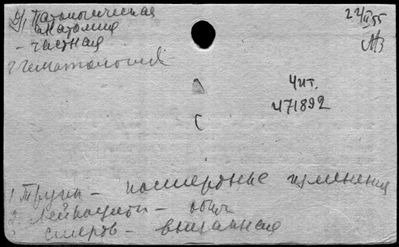 4) Патологическая
анатомия
- частная
2 Гематология
22/II 55
Чит.
471892
1 Трупы - посмертные изменения
2 Лейкоциты - общ
3 смерть - внезапная